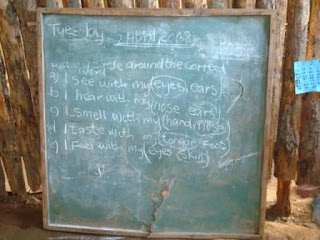 Tues by 2 April 2008
a circle around the correct
word
a) I see with my (eyes, ears)
b I hear with my (nose ears)
c) I smell with my (hand, nose)
d) I taste with my (tongue Foot)
e) I Feel with my (eyes skin)